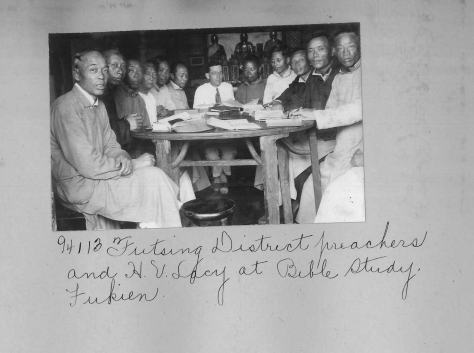 94113 Futsing District preachers
and H. V. Lacy at Bible Study.
Fukien.